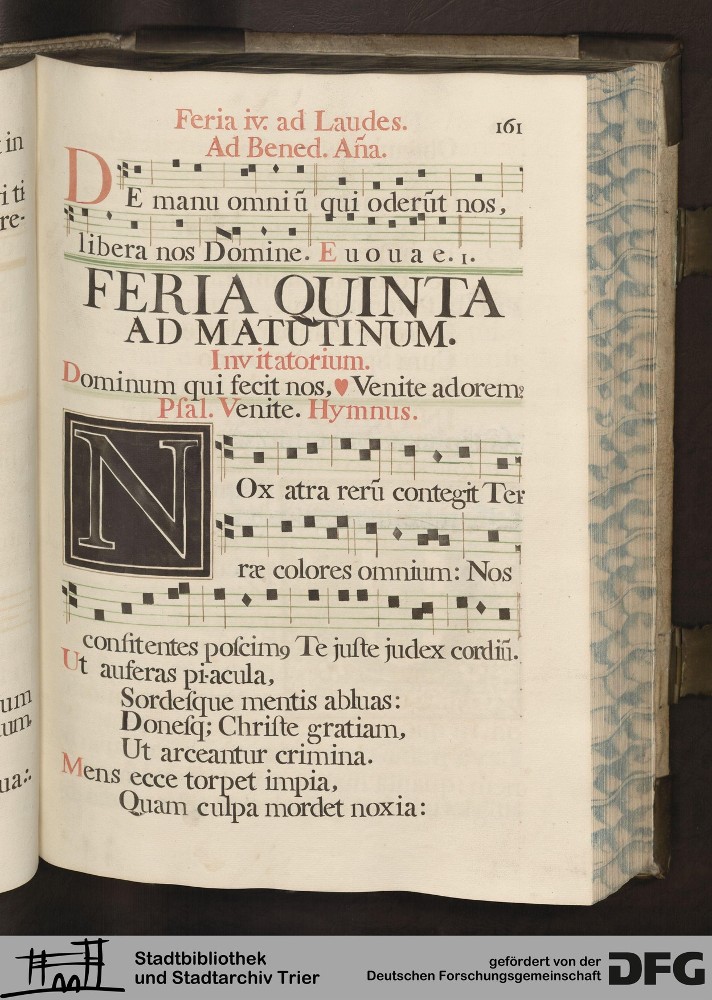 Feria iv. ad Laudes.
161
Ad Bened. Aña.
DE manu omniũ qui oderũt nos,
libera nos Domine. E u o u a e. 1.
FERIA QUINTA
AD MATUTINUM.
Invitatorium.
Dominum qui fecit nos, ♥ Venite adorem9
Pſal. Venite. Hymnus.
NOx atra rerũ contegit Ter
ræ colores omnium: Nos
confitentes poſcim9 Te juſte judex cordiũ.
Ut auferas pi-acula,
Sordeſque mentis abluas:
Doneſq; Chriſte gratiam,
Ut arceantur crimina.
Mens ecce torpet impia,
Quam culpa mordet noxia:
in
i ti
re-
um
um,
ua:.
Stadtbibliothek
und Stadtarchiv Trier
gefördert von der
Deutschen Forschungsgemeinschaft
DFG